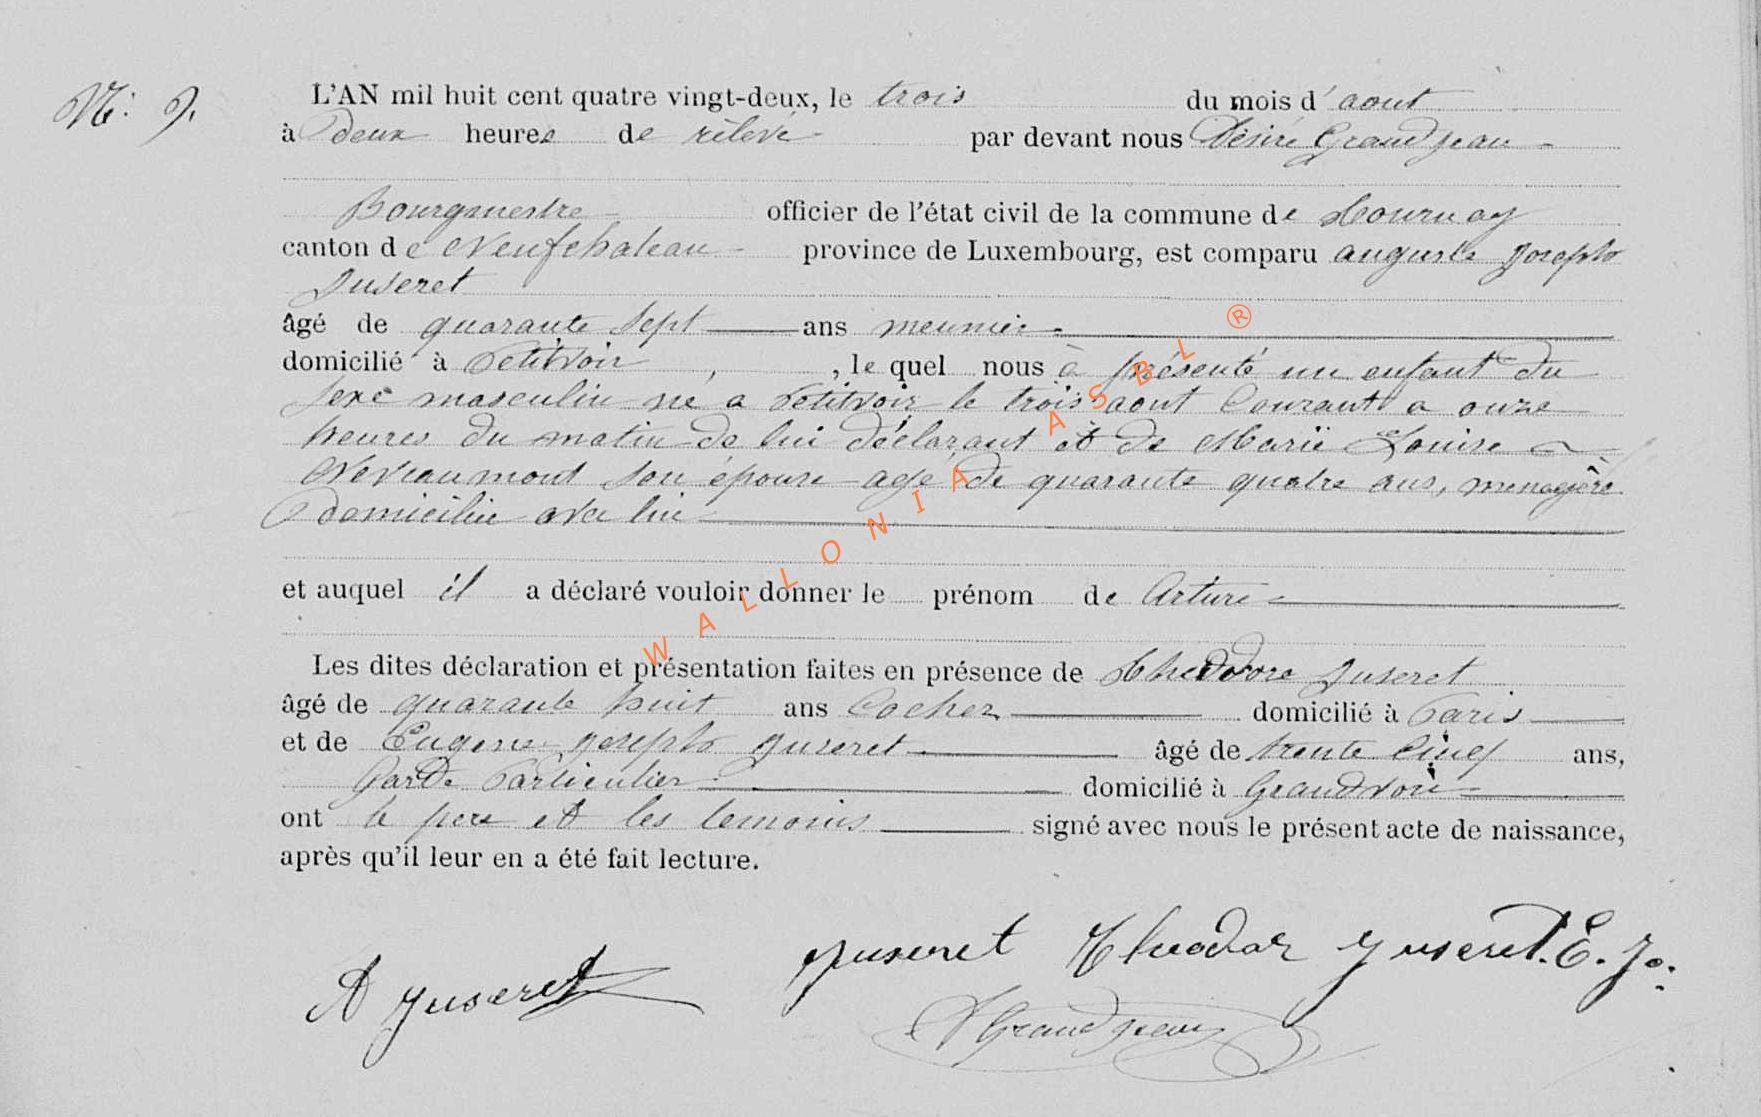 N: 9.
L'AN mil huit cent quatre vingt-deux, le trois du mois d'aout
à Deux heures de rélevé par devant nous Désiré Grandjean
Bourgmestre officier de l'état civil de la commune de Tournay
canton de Neufchateau province de Luxembourg, est comparu auguste Joseph
Juseret
âgé de quarante sept ans meunier
domicilié à Petitvoir, le quel nous à présenté un enfant du
sexe masculin né a Petitvoir le trois aout Courant a onze
heures du matin de lui déclarant et de Marie Louise
Neveaumont son épouse agé de quarante quatre ans, menagère
domiciliée avec lui
et auquel il a déclaré vouloir donner le prénom de Arture
Les dites déclaration et présentation faites en présence de Theodore Juseret
âgé de quarante huit ans Cocher domicilié à Paris
et de Eugene Joseph Juseret âgé de trente Cinq ans,
Garde Particulier domicilié à Grandvoir
ont le pere et les temoins signé avec nous le présent acte de naissance,
après qu'il leur en a été fait lecture.
A Juseret Juseret Theodor Juseret. E. Jo.
D Grandjean
WALLONIA ASBL ®